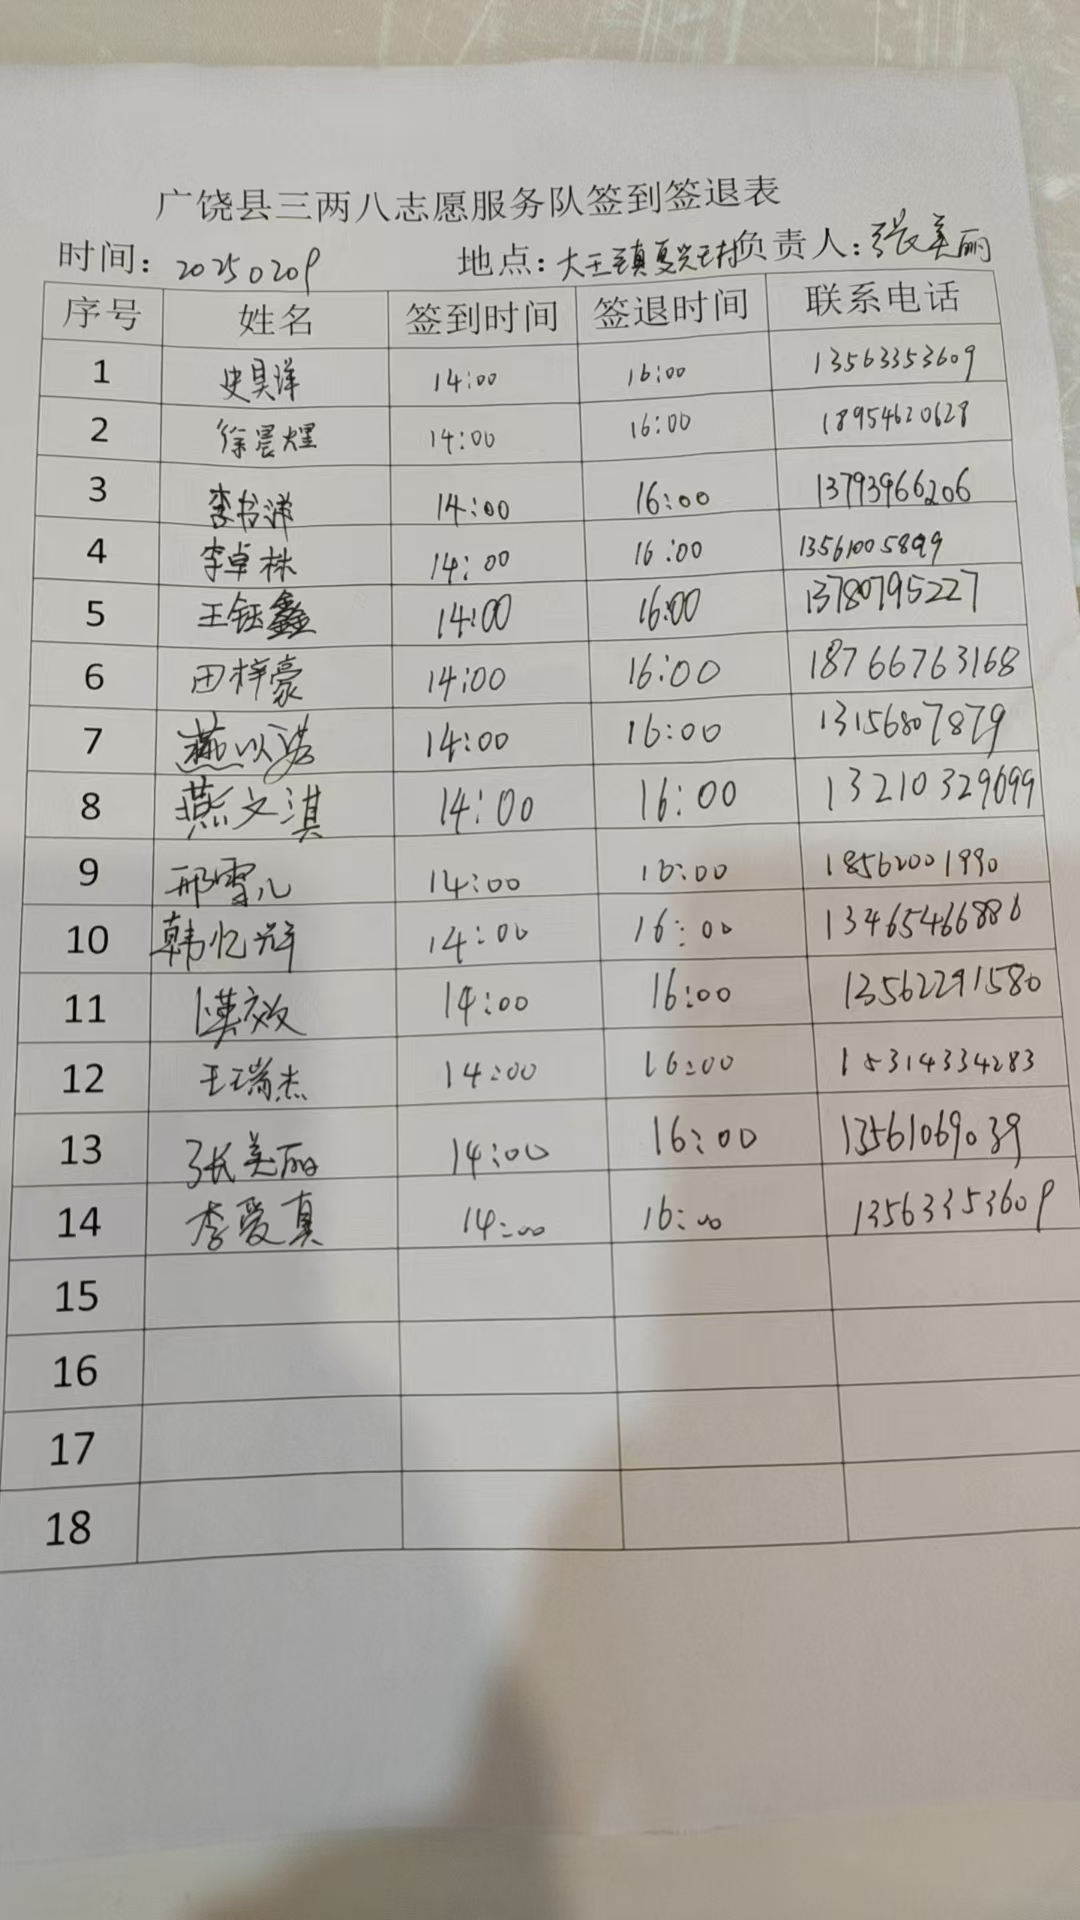 广饶县三两八志愿服务队签到签退表
时间：20250209 地点：大王镇夏兴王村 负责人：张美丽
序号 姓名 签到时间 签退时间 联系电话
1 史昊洋 14:00 16:00 13563353609
2 徐晨煜 14:00 16:00 18954620628
3 李书洋 14:00 16:00 13793966206
4 李卓株 14:00 16:00 13561005899
5 王钰鑫 14:00 16:00 13780795227
6 田梓豪 14:00 16:00 18766763168
7 燕以诺 14:00 16:00 13156807879
8 燕文淇 14:00 16:00 13210329699
9 邢雪儿 14:00 16:00 18562001990
10 韩忆 14:00 16:00 13465466886
11 14:00 16:00 13562291580
12 王瑞杰 14:00 16:00 15314334283
13 张美丽 14:00 16:00 13561069039
14 李爱真 14:00 16:00 13563353609
15
16
17
18